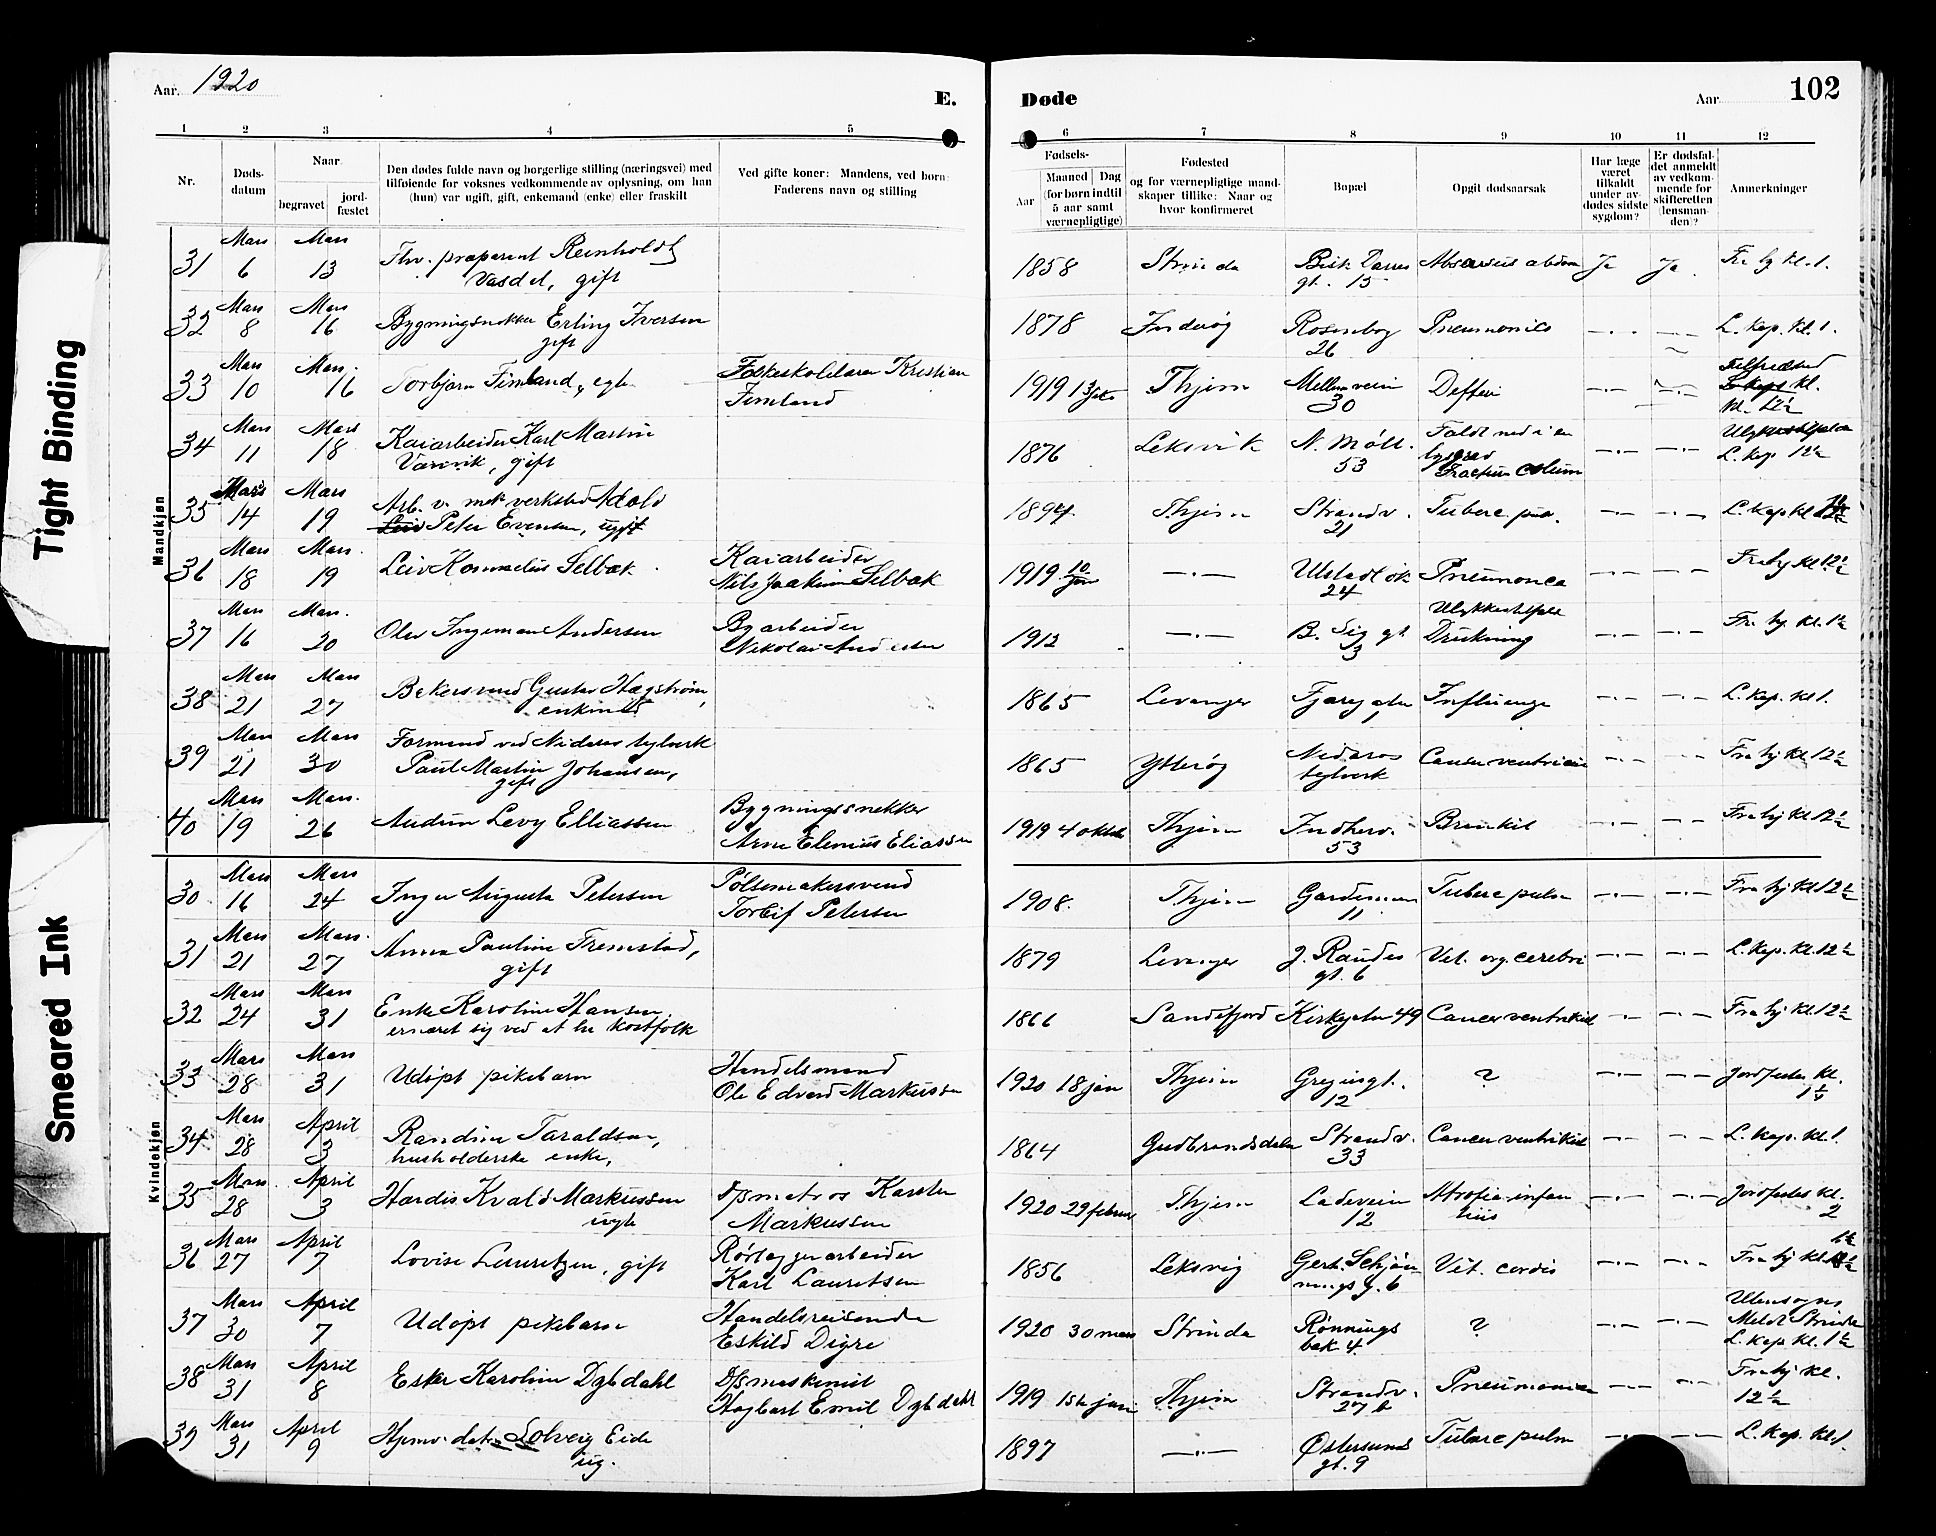 Tight Binding
Smeared Ink
Aar. 1920
E.
Døde
Aar
102
1 2 3 4 5 6 7 8 9 10 11 12
Nr.
Døds-
datum
Naar
begravet
jord-
fæstet
Den dødes fulde navn og borgerlige stilling (næringsvei) med
tilføiende for voksnes vedkommende av oplysning, om han
(hun) var ugift, gift, enkemand (enke) eller fraskilt
Ved gifte koner: Mandens, ved børn:
Faderens navn og stilling
Fødsels-
Aar
Maaned Dag
(for børn indtil
5 aar samt
værnepligtige)
Fødested
og for værnepligtige mand-
skaper tillike: Naar og
hvor konfirmeret
Bopæl
Opgit dødsaarsak
Har læge
været
tilkaldt
under av-
dødes sidste
sygdom?
Er dødsfal-
det anmeldt
av vedkom-
mende for
skifteretten
(lensman-
den)?
Anmerkninger
Mandkjøn
31 Mars 6 Mars 13 Reinholdt
gift
1858 Strinda
gt. 15
Ja Ja Kl. 1.
32 Mars 8 Mars 16 Bygningsnekker Erling Iversen
gift
1878 Inderøy Rosenborg
26
L. kap. kl. 1.
33 Mars 10 Mars. 16 Torbjørn Fimland, Folkeskolelærer Kristian
Fimland
1919 Thjem Mellemveien
30
Difteri
kl. 12½
34 Mars 11 Mars 18 Kaiarbeider Karl Martin
gift
1876 Leksvik N. Møll.
53
Faldt ned i en
L. kap 12½
35 Mars 14 Mars 19 Arb. v. mek verksted
Peter Evensen, ugift
1894 Thjem Strandv.
21
Tuberc pul.
L. kap kl
36 Mars 18 Mars. 19 Leiv Selbæk Kaiarbeider
Nils Joakim Selbæk
1919 10 jan —·— 24 Pneumonia
Fra hj kl 12½
37 Mars 16 Mars. 20 Olav Ingeman Andersen Byarbeider
Nikolai Andersen
1912 —·— B. Sig gt
3
Ulykkestilfæld
Drukning
Fra hj. kl. 1½
38 Mars 21 Mars 27 Bakersvend Gustav Hægstrøm,
enkemand
1865 Levanger Influenza
L. kap. kl 1.
39 Mars 21 Mars 30 Formand ved Nidaros teglverk
Paul Martin Johansen,
gift
1865 Ytterøy Nidaros
teglverk
Cancer ventriculi
Fra hj kl 12½
40 Mars 19 Mars. 26 Audun Levy Elliassen Bygningssnekker
Arne Elenius Eliassen
1919 4 oktob Thjem Indherv.
53
Bronkit
Fra hj kl 12½
Kvindekjøn
30 Mars 16 Mars 24 Inger Augusta Petersen Pølsemakersvend
Torleif Petersen
1908. Thjem
11
Tuberc pulm
Fra hj kl 12½
31 Mars 21 Mars. 27 Anna Pauline Fremstad,
gift
1879 Levanger J. Randes
gt. 6
Vit. org. cerebri
L. kap. kl 12½
32 Mars 24 Mars 31 Enke Karoline Hansen.
ernæret sig ved at ha kostfolk
1866 Sandefjord Kirkegaten 49 Cancer ventrikel
Fra hj kl. 12½
33 Mars 28 Mars 31 Udøpt pikebarn Handelsmand
Ole Edvard Markussen
1920 18 jan Thjem
12
?
Jordfestes kl.
34 Mars 28 April 3 Randine Taraldsen,
husholderske enke,
1864 Gudbrandsdalen Strandv.
33
Cancer ventrikel
L. kap. kl 1.
35 Mars 28 April 3 Hardis Kvald Markussen Dpmatros Karsten
Markussen
1920 29 februar Thjem Ladeveien
12
Atrofia infan
tilis
Jordfestes kl.
2
36 Mars 27 April 7 Lovise Lauritzen, gift Rørlæggerarbeider
Karl Lauritsen
1856 Leksvig Gerh. Schjøn-
nings g. 6
Vit. cordis
Fra hj kl
37 Mars 30 April 7 Udøpt pikebarn Handelsreisende
Eskild Digre
1920 30 mars Strinda Rønnings
bak 4.
?
Utensogns
Meldt Strinda
L. kap kl. 1½
38 Mars 31 April 8 Ester Karoline Dybdahl Dpsmaskinist
Hagbart Emil Dybdahl
1919 15de juni Thjem Strandv.
27 b
Pneumonia
Fra hj kl.
12½
39 Mars 31 April 9 Solveig Eide
ug.
1897 —·— Østersunds
gt. 9
Tuberc pulm
L. kap. kl. 1.